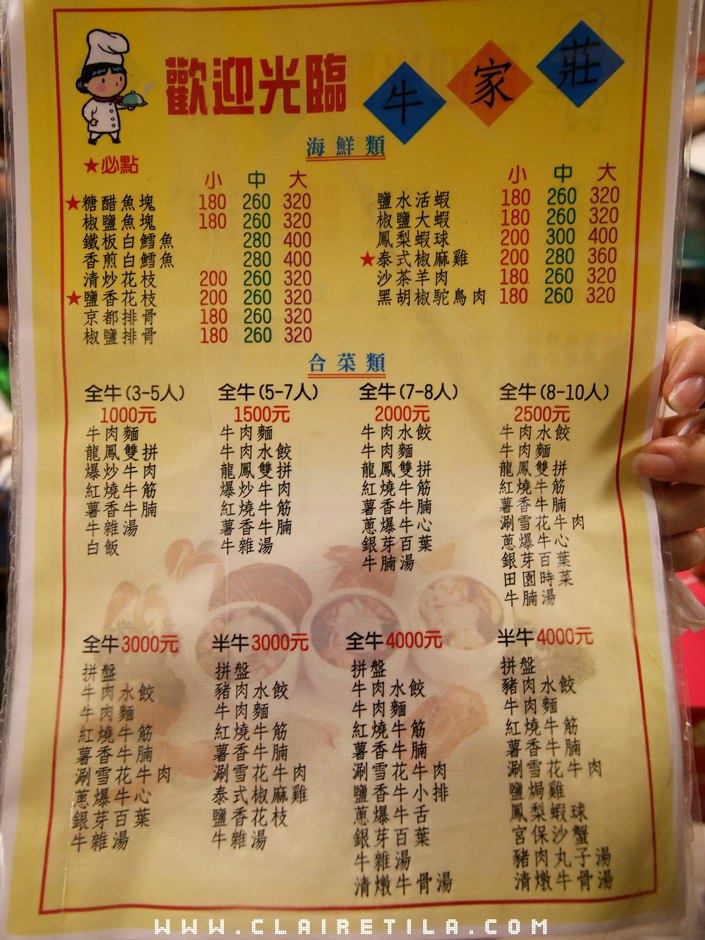 歡迎光臨 牛家莊
海鮮類
★必點
小 中 大
★糖醋魚塊 180 260 320
椒鹽魚塊 180 260 320
鐵板白鱈魚 280 400
香煎白鱈魚 280 400
清炒花枝 200 260 320
★鹽香花枝 200 260 320
京都排骨 180 260 320
椒鹽排骨 180 260 320
小 中 大
鹽水活蝦 180 260 320
椒鹽大蝦 180 260 320
鳳梨蝦球 200 300 400
★泰式椒麻雞 200 280 360
沙茶羊肉 180 260 320
黑胡椒駝鳥肉 180 260 320
合菜類
全牛(3-5人)
1000元
牛肉麵
龍鳳雙拼
爆炒牛肉
紅燒牛筋
薯香牛腩
牛雜湯
白飯
全牛(5-7人)
1500元
牛肉麵
牛肉水餃
龍鳳雙拼
爆炒牛肉
紅燒牛筋
薯香牛腩
牛雜湯
全牛(7-8人)
2000元
牛肉水餃
牛肉麵
龍鳳雙拼
紅燒牛筋
薯香牛腩
蔥爆牛心
銀芽百葉
牛腩湯
全牛(8-10人)
2500元
牛肉水餃
牛肉麵
龍鳳雙拼
紅燒牛筋
薯香牛腩
涮雪花牛肉
蔥爆牛心
銀芽百葉
田園時菜
牛腩湯
全牛3000元
拼盤
牛肉水餃
牛肉麵
紅燒牛筋
薯香牛腩
涮雪花牛肉
蔥爆牛心
銀芽百葉
牛雜湯
半牛3000元
拼盤
豬肉水餃
牛肉麵
紅燒牛筋
薯香牛腩
涮雪花牛肉
泰式椒麻雞
鹽香花枝
牛雜湯
全牛4000元
拼盤
牛肉水餃
牛肉麵
紅燒牛筋
薯香牛腩
涮雪花牛肉
鹽香牛小排
蔥爆牛舌
銀芽百葉
牛雜湯
清燉牛骨湯
半牛4000元
拼盤
豬肉水餃
牛肉麵
紅燒牛筋
薯香牛腩
涮雪花牛肉
鹽焗雞
鳳梨蝦球
宮保沙蟹
豬肉丸子湯
清燉牛骨湯
WWW.CLAIRETILA.COM